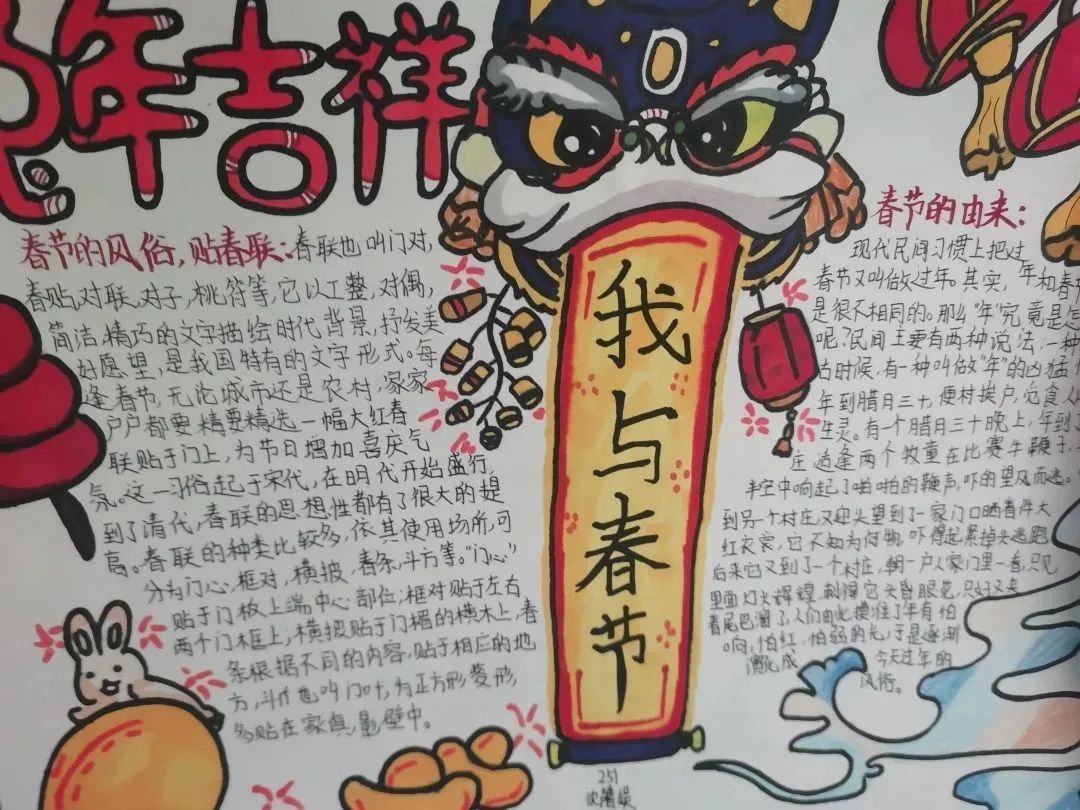 年吉祥
春节的风俗,贴春联:春联也叫门对,
春贴,对联,对子,桃符等,它以工整,对偶,
简洁,精巧的文字描绘时代背景,抒发美
好愿望,是我国特有的文字形式。每
逢春节,无论城市还是农村,家家
户户都要精要精选一幅大红春
联贴于门上,为节日增加喜庆气
氛。这一习俗起于宋代,在明代开始盛行,
到了清代,春联的思想性都有了很大的提
高。春联的种类比较多,依其使用场所,可
分为门心,框对,横披,春条,斗方等。“门心”
贴于门板上端中心部位;框对贴于左右
两个门框上;横披贴于门楣的横木上,春
条根据不同的内容,贴于相应的地
方,斗 也叫门叶,为正方形菱形,
多贴在家俱,影壁中。
我与春节
春节的由来:
现代民间习惯上把过
春节又叫做过年。其实,年和春节
是很不相同的。那么“年”究竟是怎
呢?民间主要有两种说法:一种
古时候,有一种叫做“年”的凶猛
年到腊月三十,便村挨户,觅食人
生灵。有个腊月三十晚上,年到了
庄,适逢两个牧童在比赛牛鞭子,
半空中响起了啪啪的鞭声,吓的望风而逃。
到另一个村庄又迎头望到了一家门口晒着件大
红衣裳,它不知为何物,吓得赶紧掉头逃跑
后来它又到了一个村庄,朝一户人家门里一看,只见
里面灯火辉煌,刺得它头昏眼花,只好又夹
着尾巴溜了,人们由此摸准了年有怕
响,怕红,怕弱的光,于是逐渐
演化成今天过年的
风俗。
251